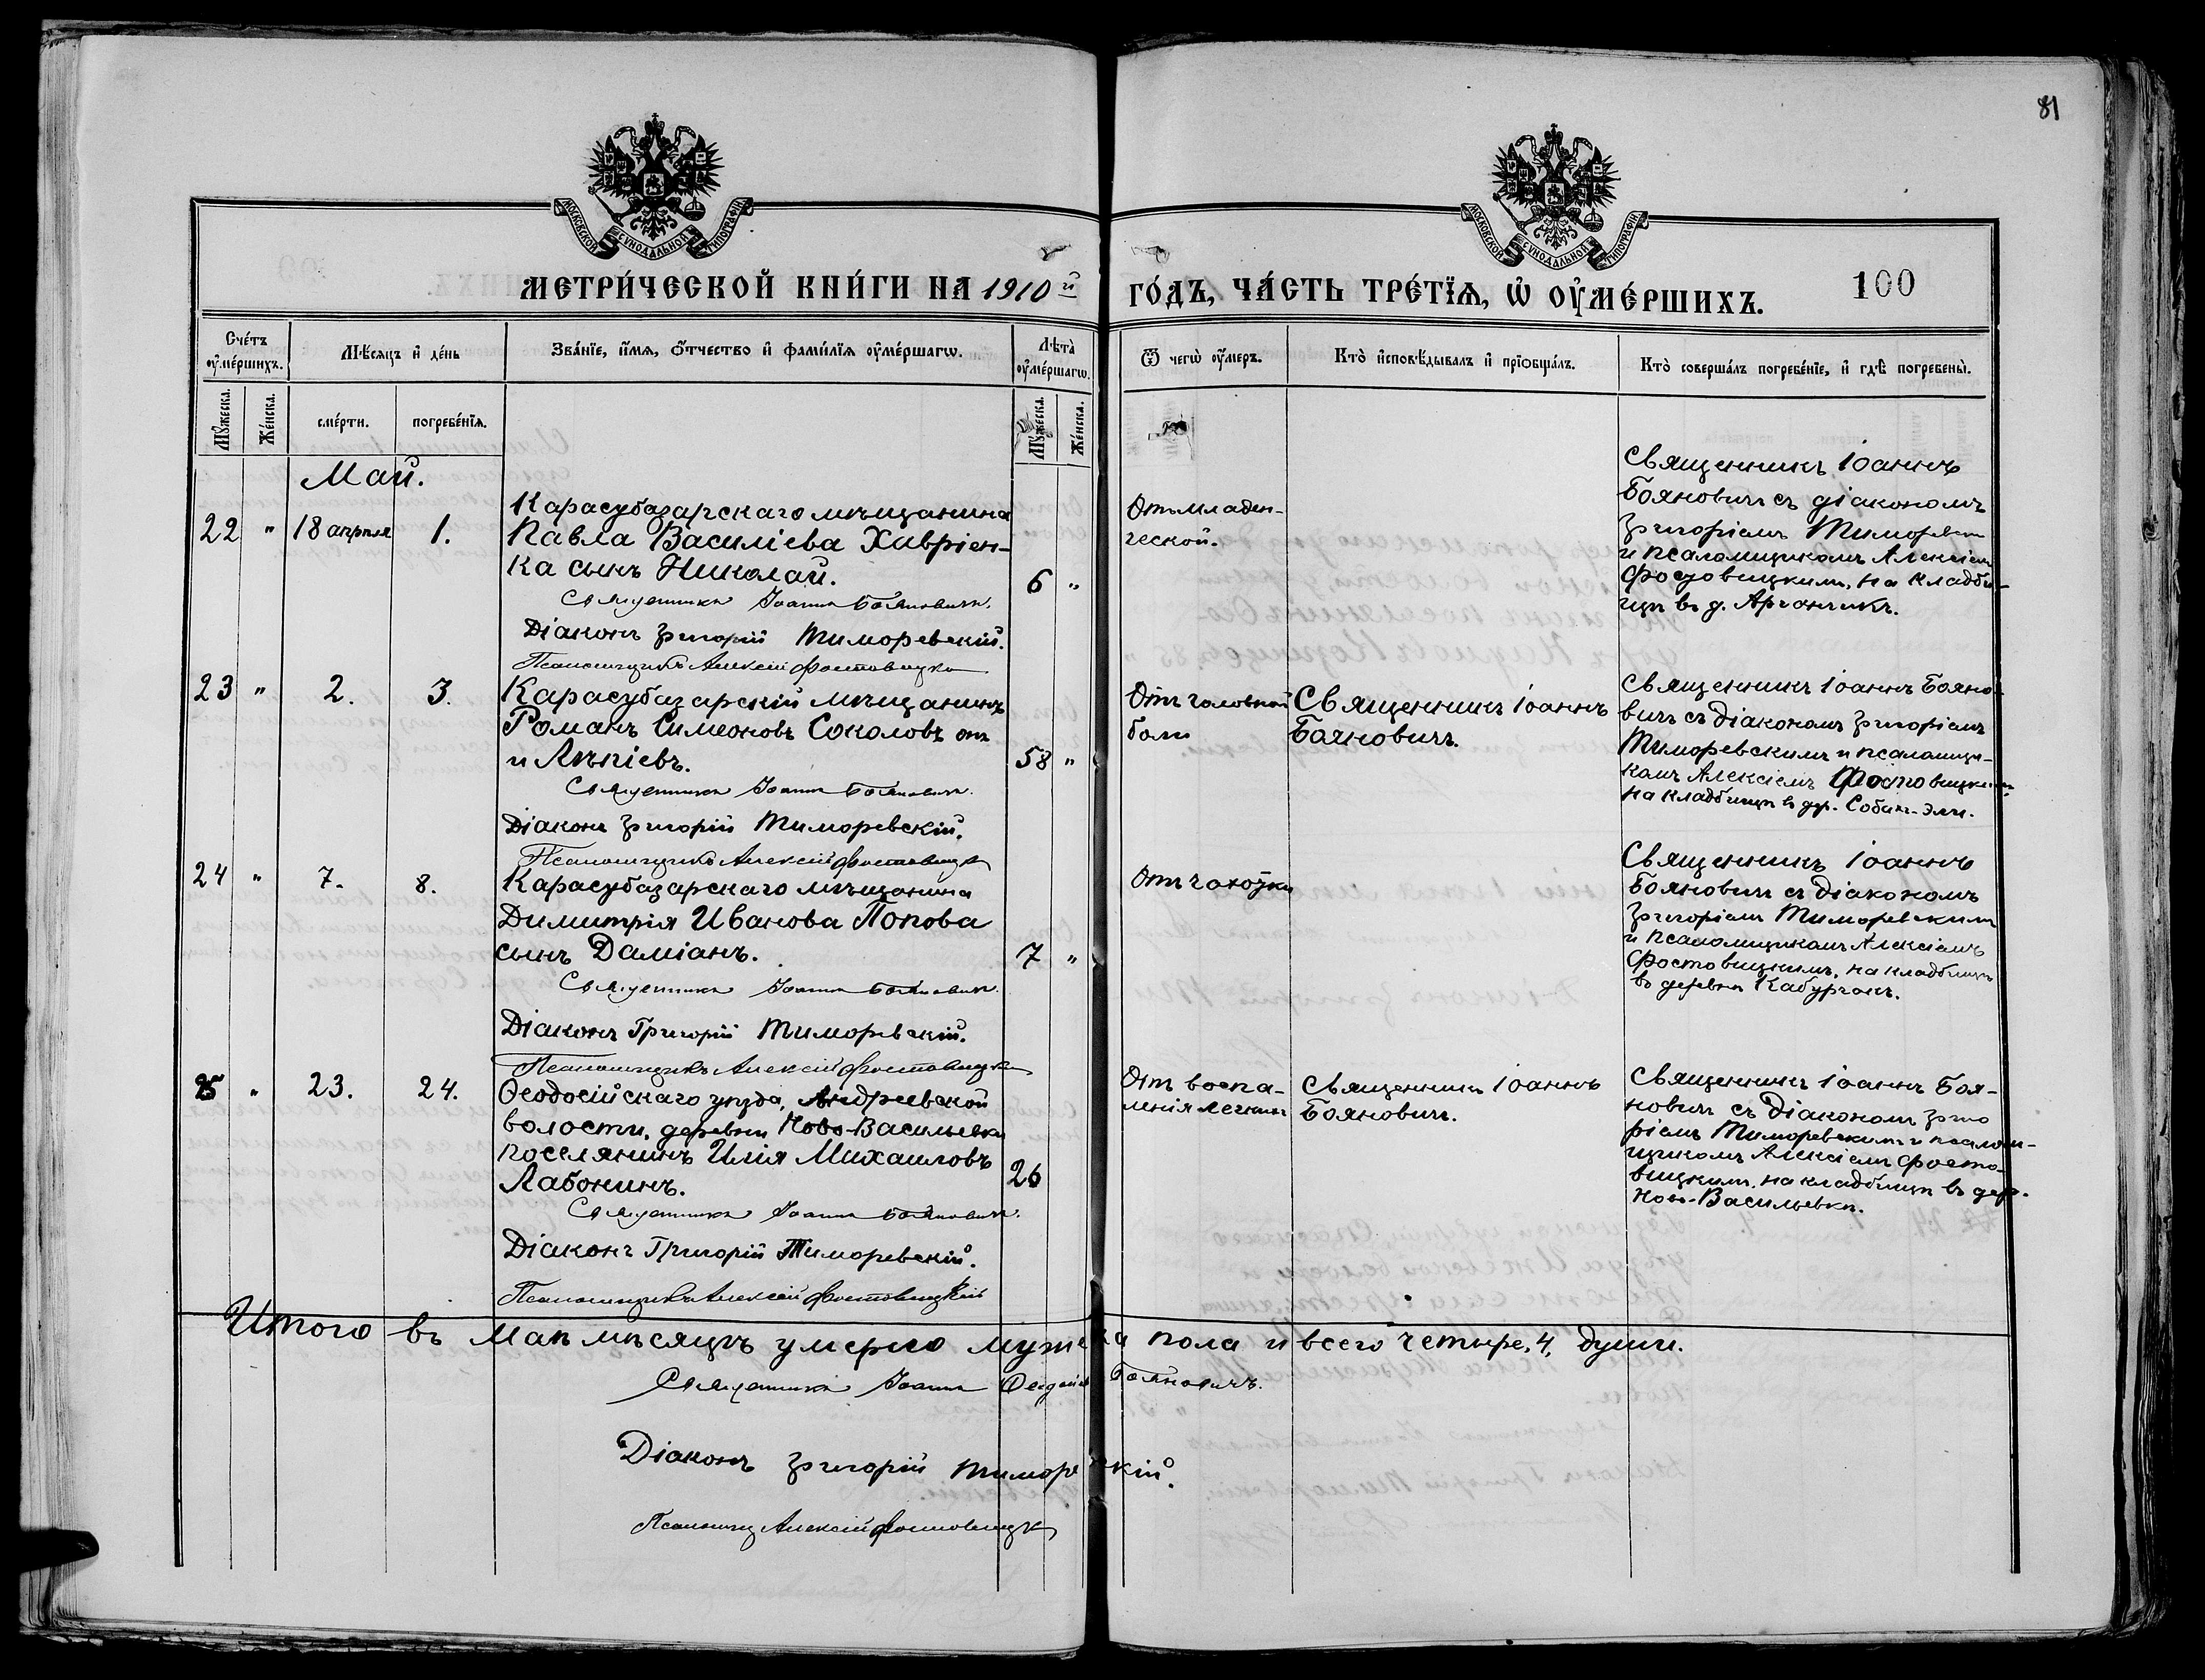 81
МОСКОВСКОЙ СѴНОДАЛЬНОЙ ТИПОГРАФІИ
МОСКОВСКОЙ СѴНОДАЛЬНОЙ ТИПОГРАФІИ
МЕТРИ́ЧЕСКОЙ КНИ́ГИ НА 1910й ГО́ДЪ, ЧА́СТЬ ТРЕ́ТЇѦ, Ѡ҆ ОУ҆МЕ́РШИХЪ.
100
Сче́тъ оу҆ме́ршихъ.
Мѣ́сяцъ и҆ де́нь
Зва́нїе, и҆́мя, ѻ҆́тчество и҆ фами́лїя оу҆ме́ршагѡ.
Лѣ́та оу҆ме́ршагѡ.
Ѿ чегѡ̀ оу҆́меръ.
Кто̀ и҆сповѣ́дывалъ и҆ прїѡбща́лъ.
Кто̀ соверша́лъ погребе́нїе, и҆ гдѣ̀ погребены̀.
Му́жеска.
Же́нска.
сме́рти.
погребе́нїя.
Му́жеска.
Же́нска.
Май.
22 " 18 апрѣля 1.
Карасубазарскаго мѣщанина
Павла Василіева Хивріен-
ка сынъ Николай.
6 "
Священникъ Іоаннъ Бояновичъ.
Діаконъ Григорій Тиморевскій.
Псаломщикъ Алексій Фостовицкій
Отъ младен-
ческой.
Священникъ Іоаннъ
Бояновичъ съ діакономъ
Григоріемъ Тиморевским
и псаломщикомъ Алексіем
Фостовицкимъ, на кладби-
щѣ въ д. Аргинчикъ.
23 " 2. 3.
Карасубазарскій мѣщанинъ
Романъ Симеоновъ Соколовъ онъ
и Лѣпіевъ.
58 "
Священникъ Іоаннъ Бояновичъ.
Діаконъ Григорій Тиморевскій.
Псаломщикъ Алексій Фостовицкій
Отъ головной
боли
Священникъ Іоаннъ
Бояновичъ.
Священникъ Іоаннъ Бояно-
вичъ съ діакономъ Григоріемъ
Тиморевскимъ и псаломщи-
комъ Алексіемъ Фостовицким
на кладбищѣ в дер. Собан-Эли.
24 " 7. 8.
Карасубазарскаго мѣщанина
Димитрія Иванова Попова
сынъ Даміанъ.
7 "
Священникъ Іоаннъ Бояновичъ.
Діаконъ Григорій Тиморевскій.
Псаломщикъ Алексій Фостовицкій
Отъ чахотки
Священникъ Іоаннъ
Бояновичъ съ Діакономъ
Григоріемъ Тиморевским
и псаломщикомъ Алексіемъ
Фостовицкимъ, на кладбищѣ
въ деревни Кабурчакъ.
25 " 23. 24.
Ѳеодосійскаго уѣзда, Андреевской
волости, деревни Ново-Васильевки
поселянинъ Илія Михаиловъ
Лабонинъ.
26
Священникъ Іоаннъ Бояновичъ.
Діаконъ Григорій Тиморевскій.
Псаломщикъ Алексій Фостовицкій
Отъ воспа-
ленія легкихъ
Священникъ Іоаннъ
Бояновичъ.
Священникъ Іоаннъ Боя-
новичъ съ Діакономъ Григо
ріемъ Тиморевскимъ и псалом-
щикомъ Алексіемъ Фосто-
вицкимъ, на кладбищѣ въ дер.
Ново-Васильевкѣ.
Итого въ Маѣ мѣсяцѣ умерло муже ка пола и всего четыре, 4, души.
Священникъ Іоаннъ Бояновичъ.
Діаконъ Григорій Тиморе скій.
Псаломщ Алексій Фостовицкій